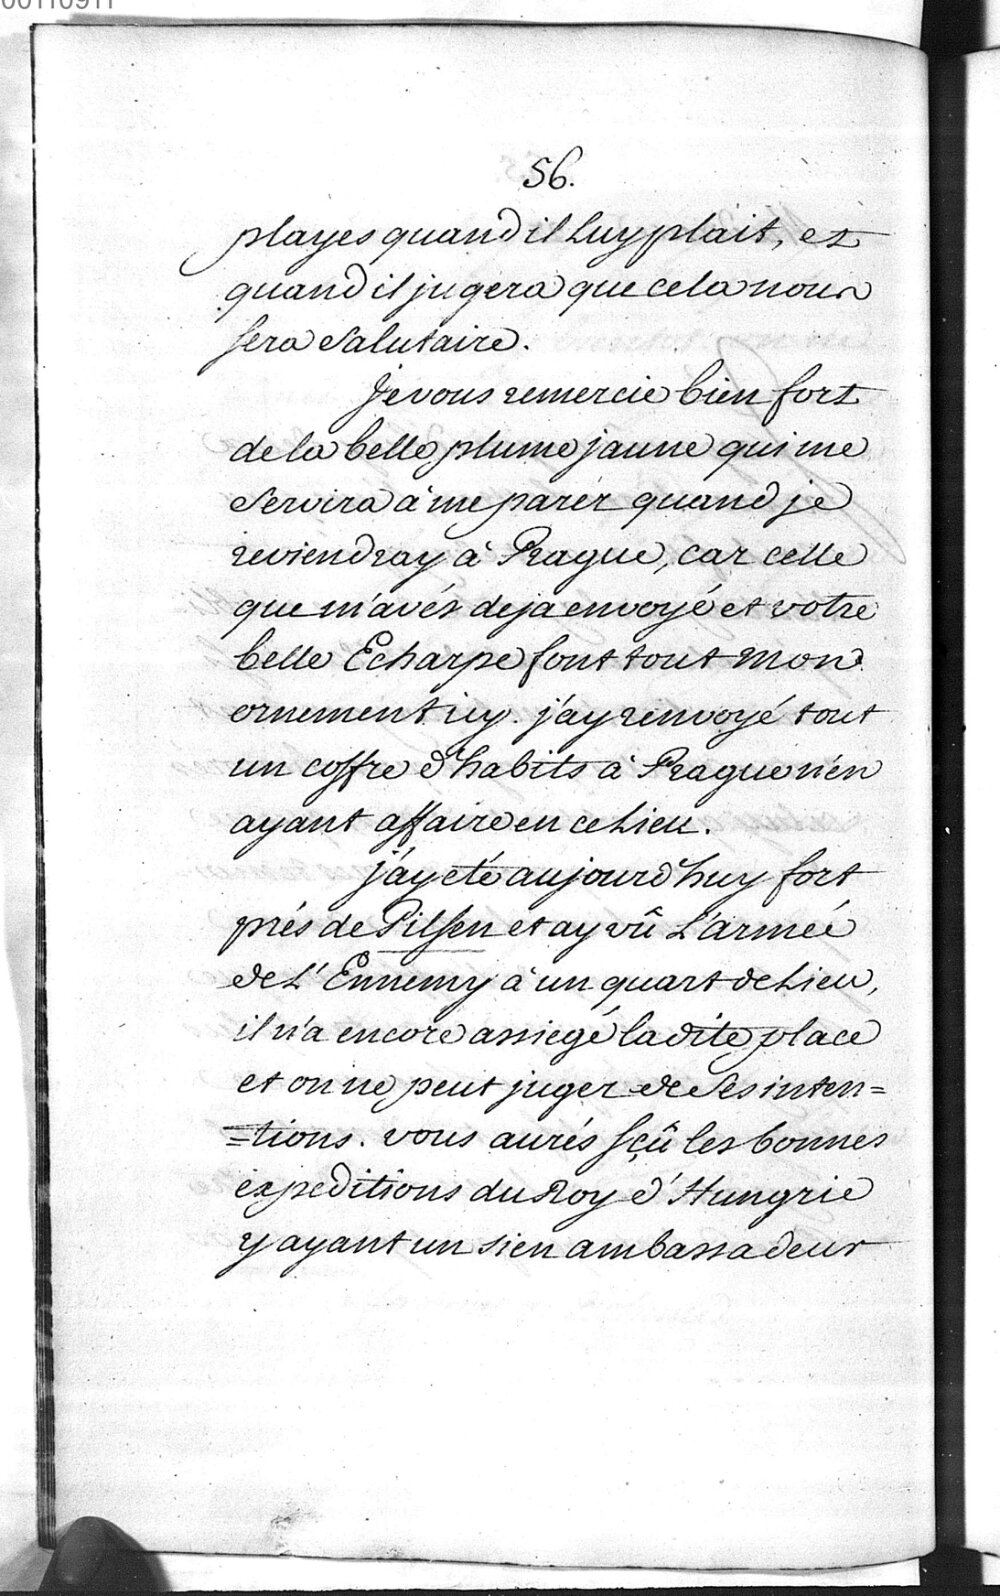 00110911
56.
playes quand il Luy plait, et
quand il jugera que cela nous
sera salutaire.
Je vous remercie bien fort
de la belle plume jaune qui me
servira à me parer quand je
reviendray à Prague, car celle
que m'avés deja envoyé et votre
belle Echarpe font tout mon
ornement icy. j'ay renvoyé tout
un coffre d'habits à Prague n'en
ayant affaire en ce Lieu.
j'ay eté aujourd'huy fort
prés de Pilsen et ay vû L'armée
de L'Ennemy à un quart de Lieu,
il n'a encore assiegé ladite place
et on ne peut juger de ses inten=
=tions. vous aurés sçû les bonnes
expeditions du Roy d'Hungrie
y ayant un sien ambassadeur